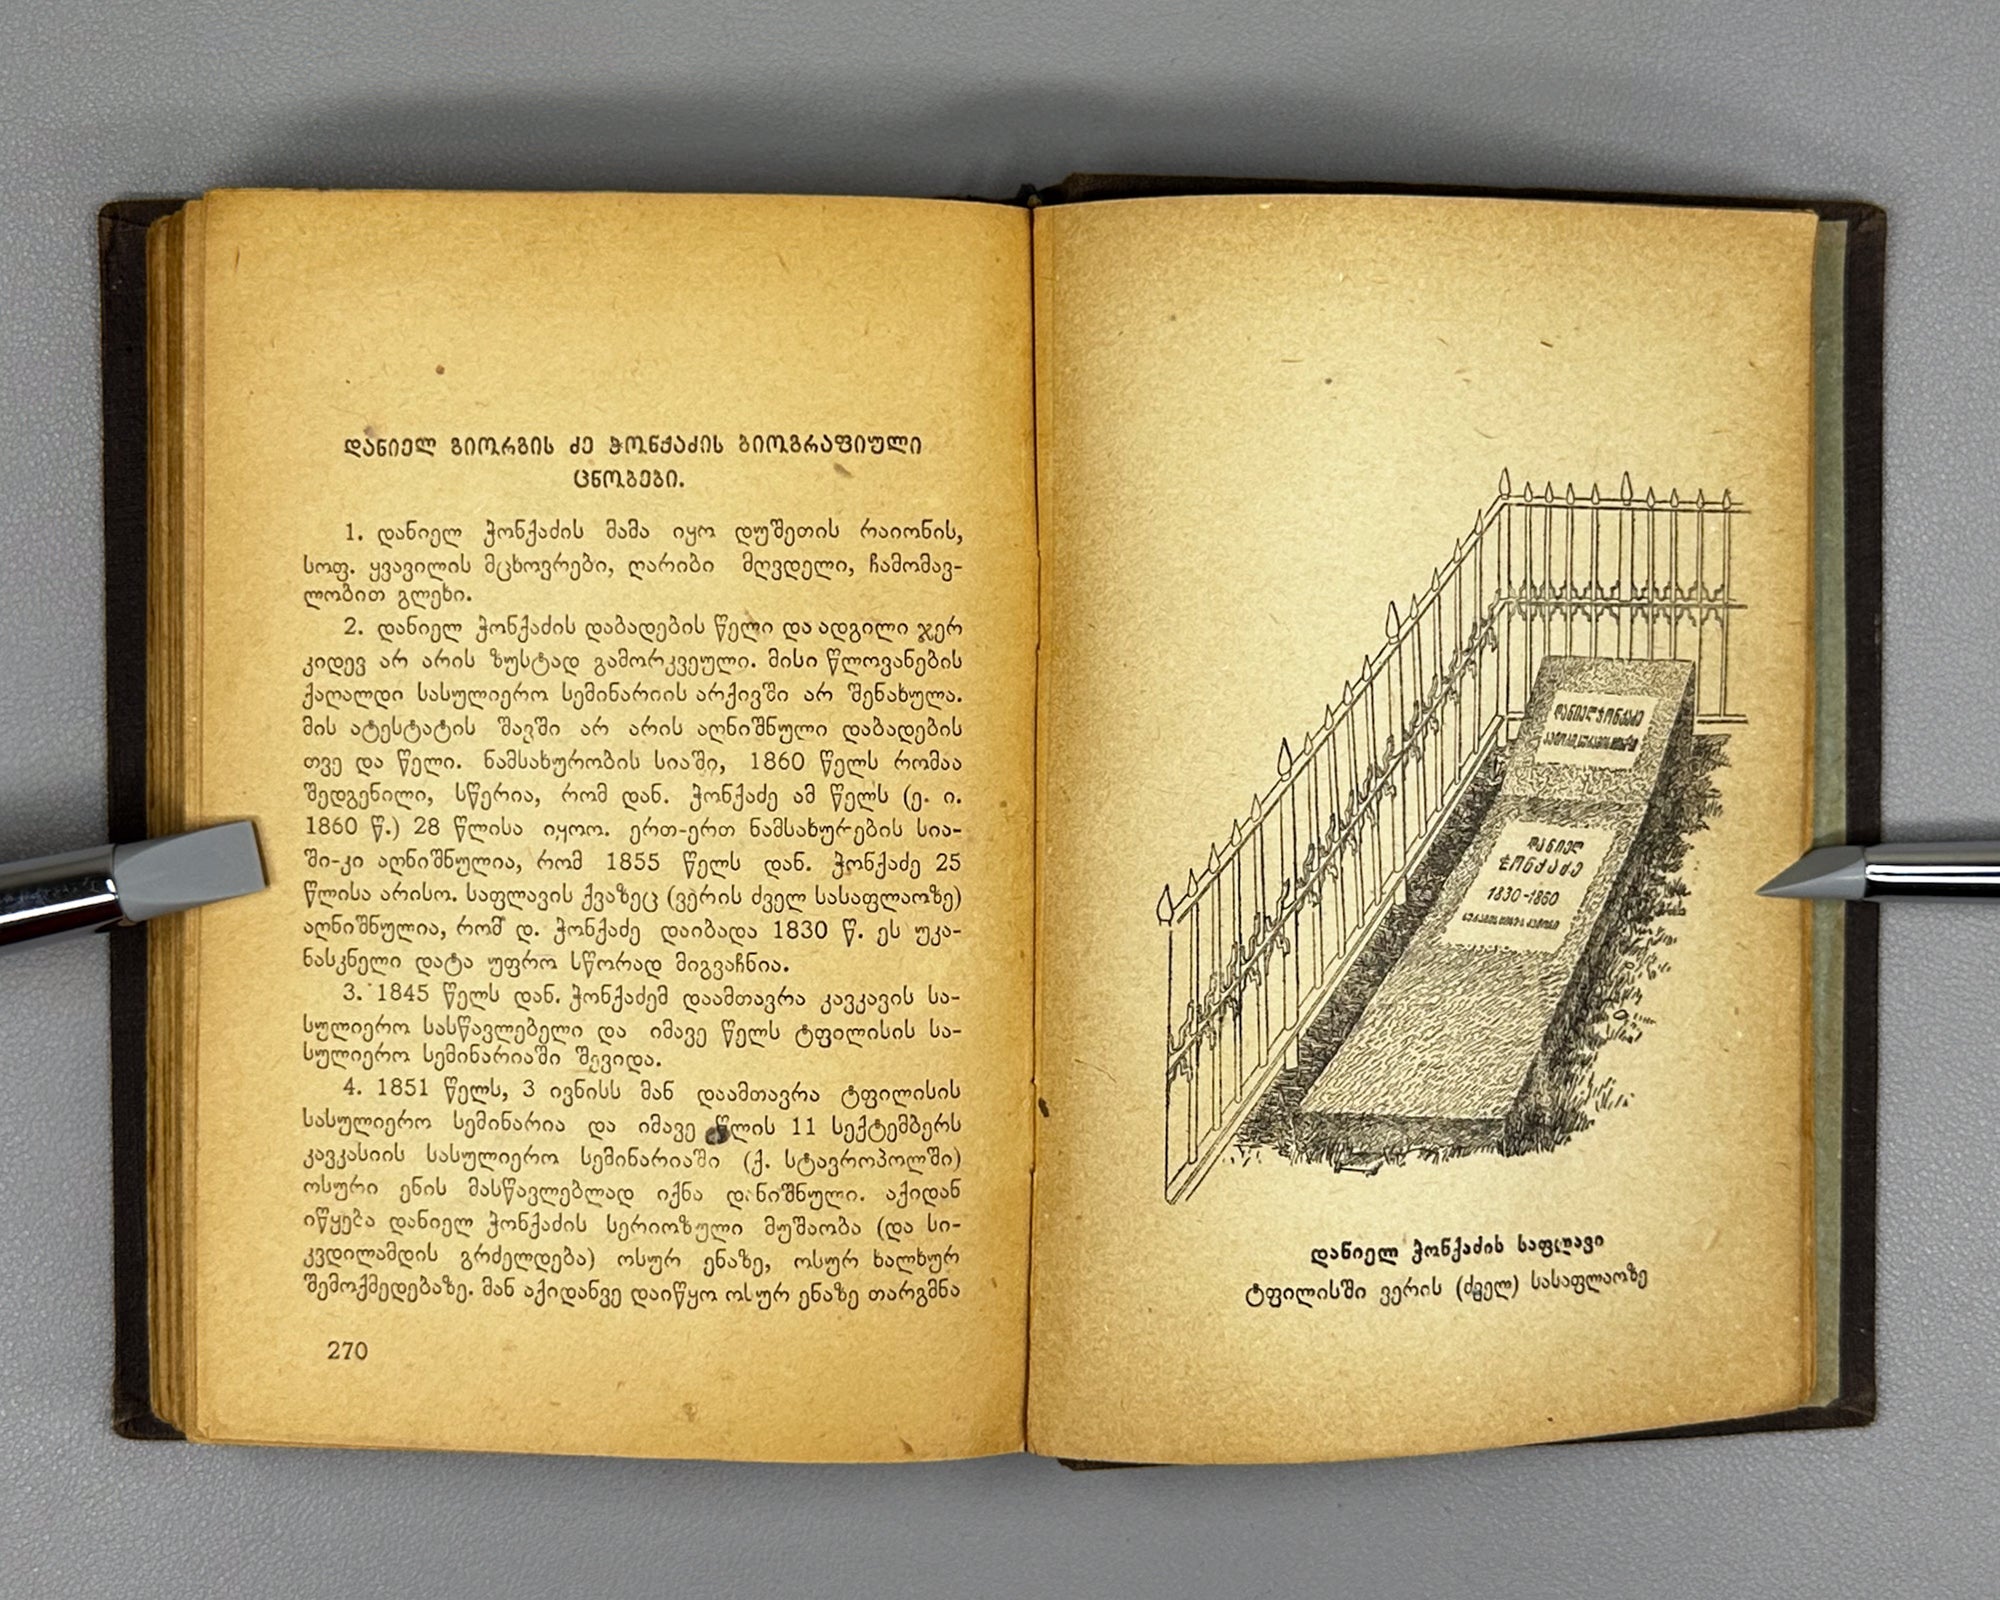 დანიელ გიორგის ძე ჭონქაძის ბიოგრაფიული
ცნობები.
1. დანიელ ჭონქაძის მამა იყო დუშეთის რაიონის,
სოფ. ყვავილის მცხოვრები, ღარიბი მღვდელი, ჩამომავ-
ლობით გლეხი.
2. დანიელ ჭონქაძის დაბადების წელი და ადგილი ჯერ
კიდევ არ არის ზუსტად გამორკვეული. მისი წლოვანების
ქაღალდი სასულიერო სემინარიის არქივში არ შენახულა.
მის ატესტატის შავში არ არის აღნიშნული დაბადების
თვე და წელი. ნამსახურობის სიაში, 1860 წელს რომაა
შედგენილი, სწერია, რომ დან. ჭონქაძე ამ წელს (ე. ი.
1860 წ.) 28 წლისა იყოო. ერთ-ერთ ნამსახურების სია-
ში-კი აღნიშნულია, რომ 1855 წელს დან. ჭონქაძე 25
წლისა არისო. საფლავის ქვაზეც (ვერის ძველ სასაფლაოზე)
აღნიშნულია, რომ დ. ჭონქაძე დაიბადა 1830 წ. ეს უკა-
ნასკნელი დატა უფრო სწორად მიგვაჩნია.
3. 1845 წელს დან. ჭონქაძემ დაამთავრა კავკავის სა-
სულიერო სასწავლებელი და იმავე წელს ტფილისის სა-
სულიერო სემინარიაში შევიდა.
4. 1851 წელს, 3 ივნისს მან დაამთავრა ტფილისის
სასულიერო სემინარია და იმავე წლის 11 სექტემბერს
კავკასიის სასულიერო სემინარიაში (ქ. სტავროპოლში)
ოსური ენის მასწავლებლად იქნა დანიშნული. აქიდან
იწყება დანიელ ჭონქაძის სერიოზული მუშაობა (და სი-
კვდილამდის გრძელდება) ოსურ ენაზე, ოსურ ხალხურ
შემოქმედებაზე. მან აქიდანვე დაიწყო ოსურ ენაზე თარგმნა
270
დანიელ ჭონქაძე
დანიელ
ჭონქაძე
1830-1860
დანიელ ჭონქაძის საფლავი
ტფილისში ვერის (ძველ) სასაფლაოზე